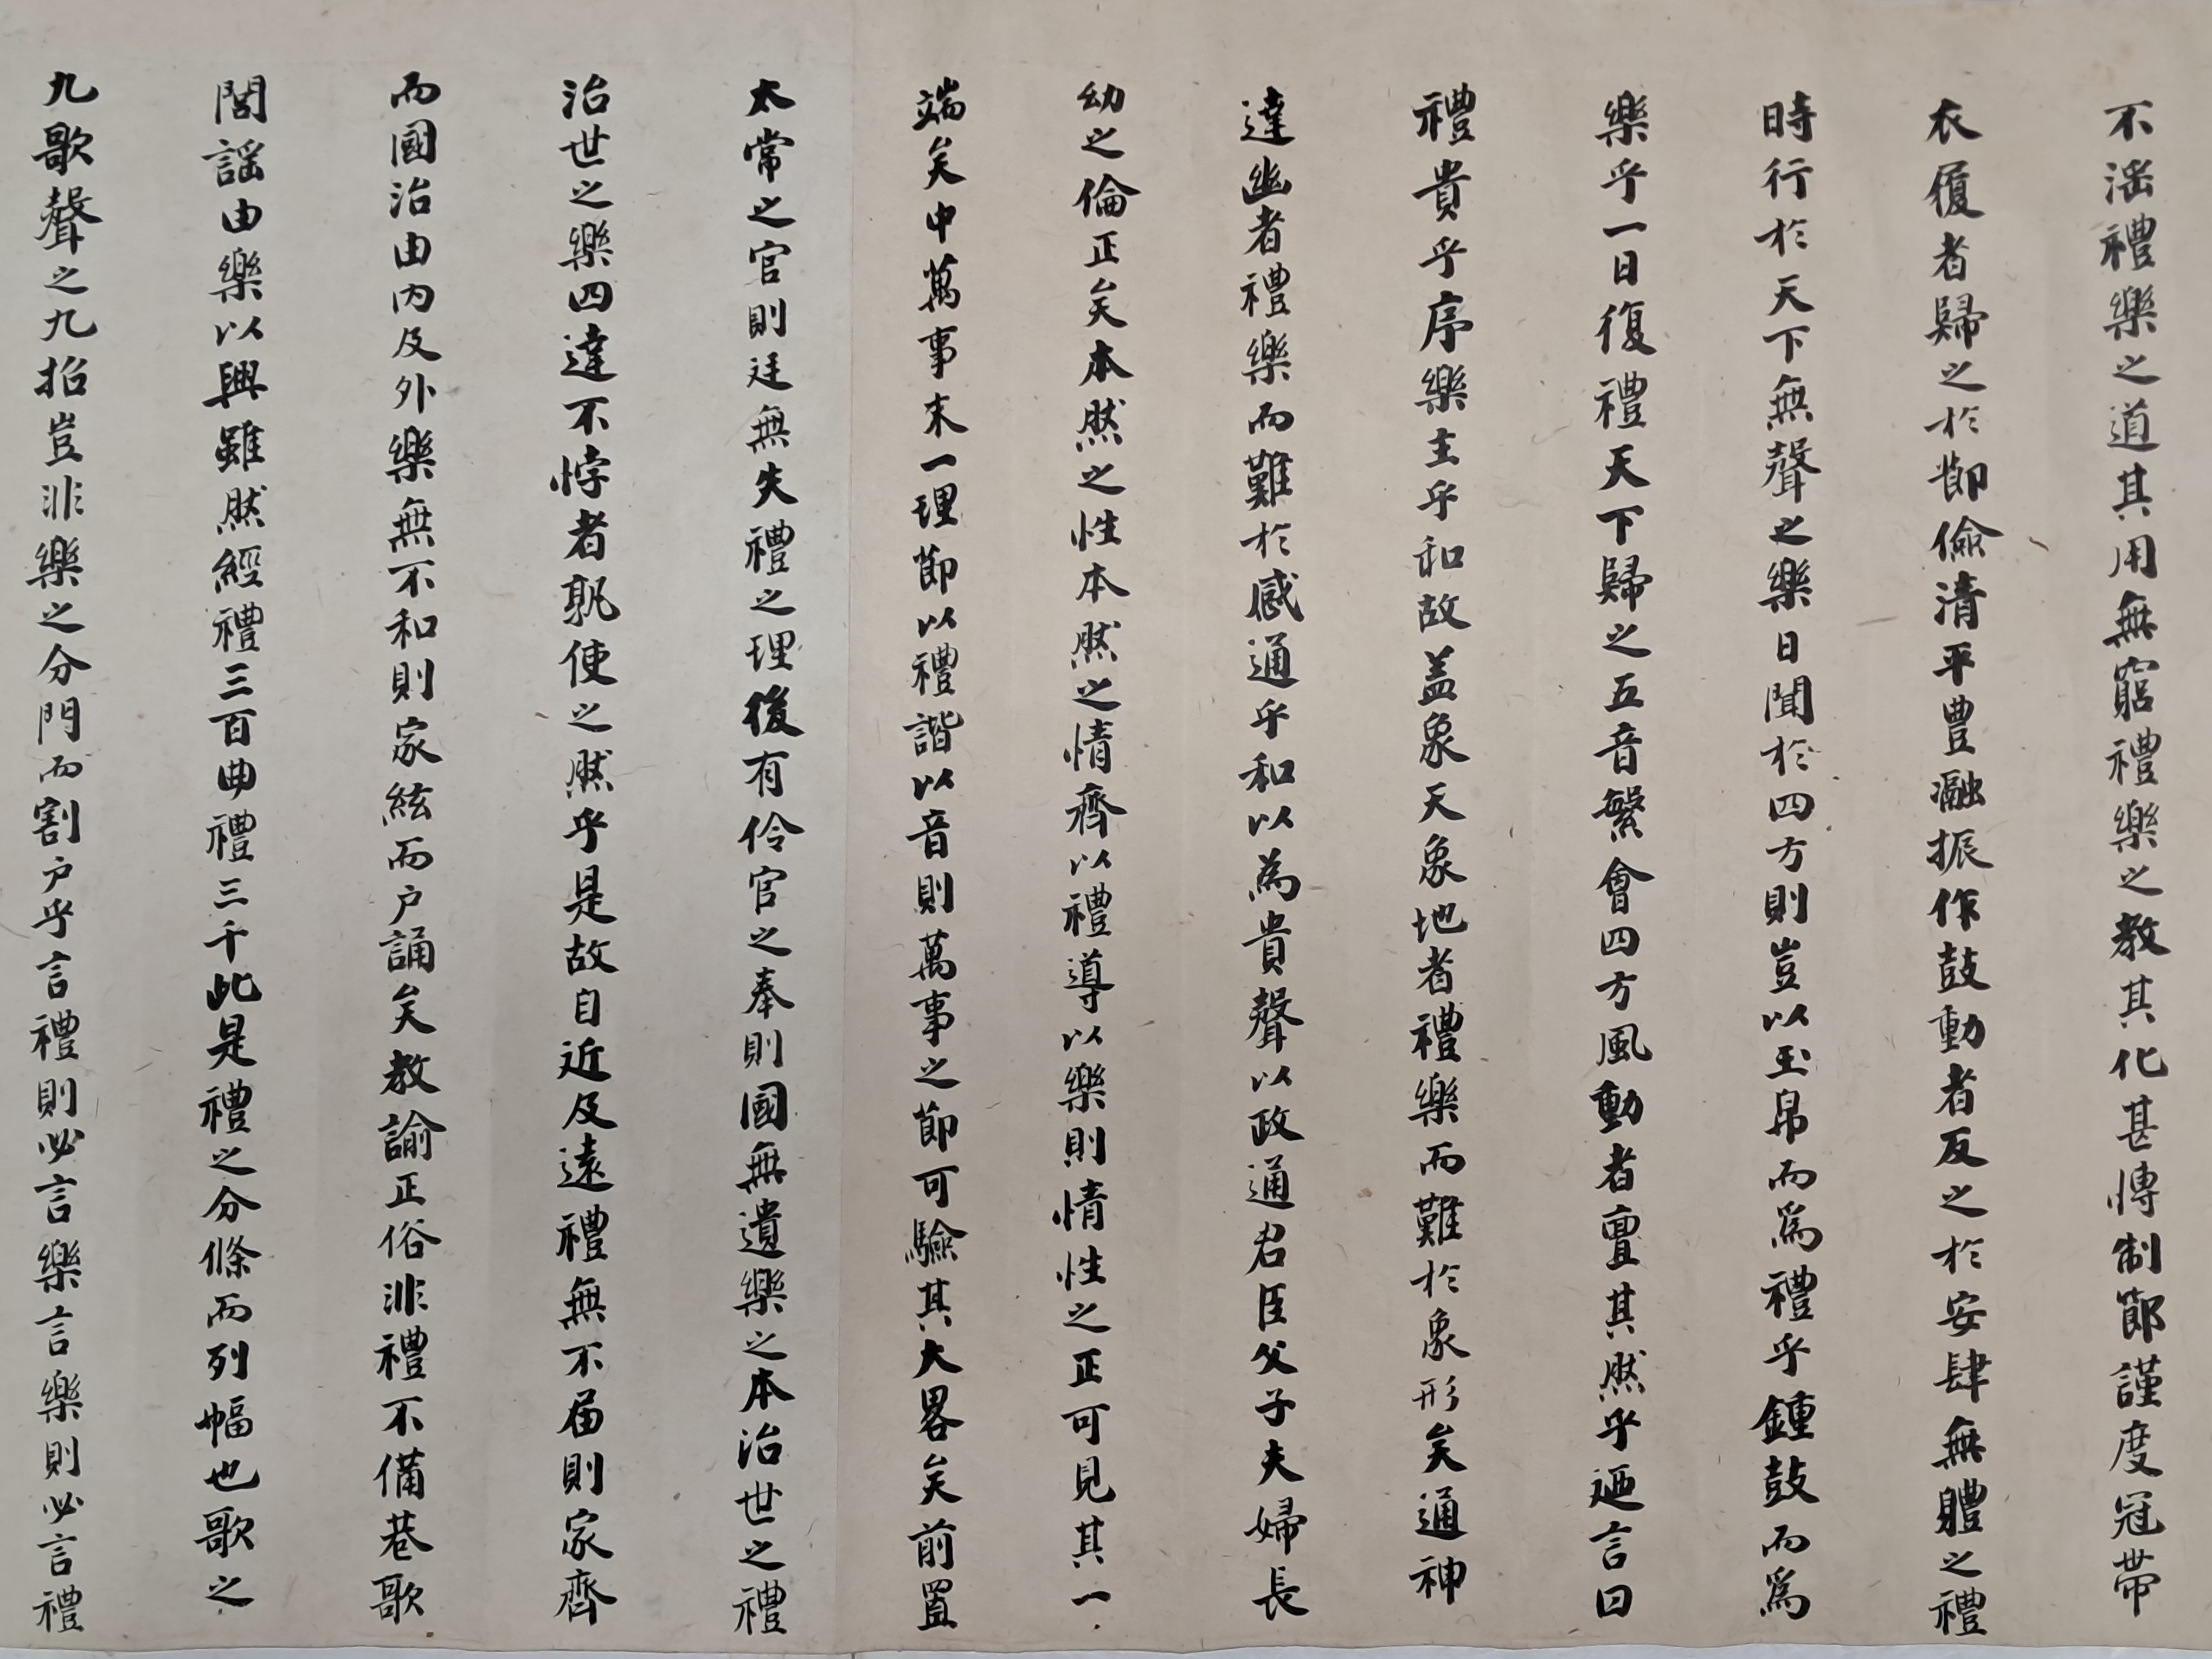 不滛禮樂之道其用無窮禮樂之教其化甚慱制節謹度冠帶
衣履者歸之於節儉清平豊瀜振作鼓動者反之於安肆無軆之禮
時行於天下無聲之樂日聞於四方則豈以玉帛而爲禮乎鍾鼓而爲
樂乎一日復禮天下歸之五音繁會四方風動者亶其然乎廼言曰
禮貴乎序樂主乎和故盖象天象地者禮樂而難於象形矣通神
達幽者禮樂而難於感通乎和以為貴聲以政通君臣父子夫婦長
幼之倫正矣本然之性本然之情齊以禮導以樂則情性之正可見其一
端矣中萬事末一理節以禮諧以音則萬事之節可驗其大畧矣前置
太常之官則廷無失禮之理後有伶官之奉則國無遺樂之本治世之禮
治世之樂四達不悖者孰使之然乎是故自近及遠禮無不届則家齊
而國治由內及外樂無不和則家絃而户誦矣教諭正俗非禮不備巷歌
閭謠由樂以興雖然經禮三百曲禮三千此是禮之分條而列幅也歌之
九歌聲之九招豈非樂之分門而割户乎言禮則必言樂言樂則必言禮